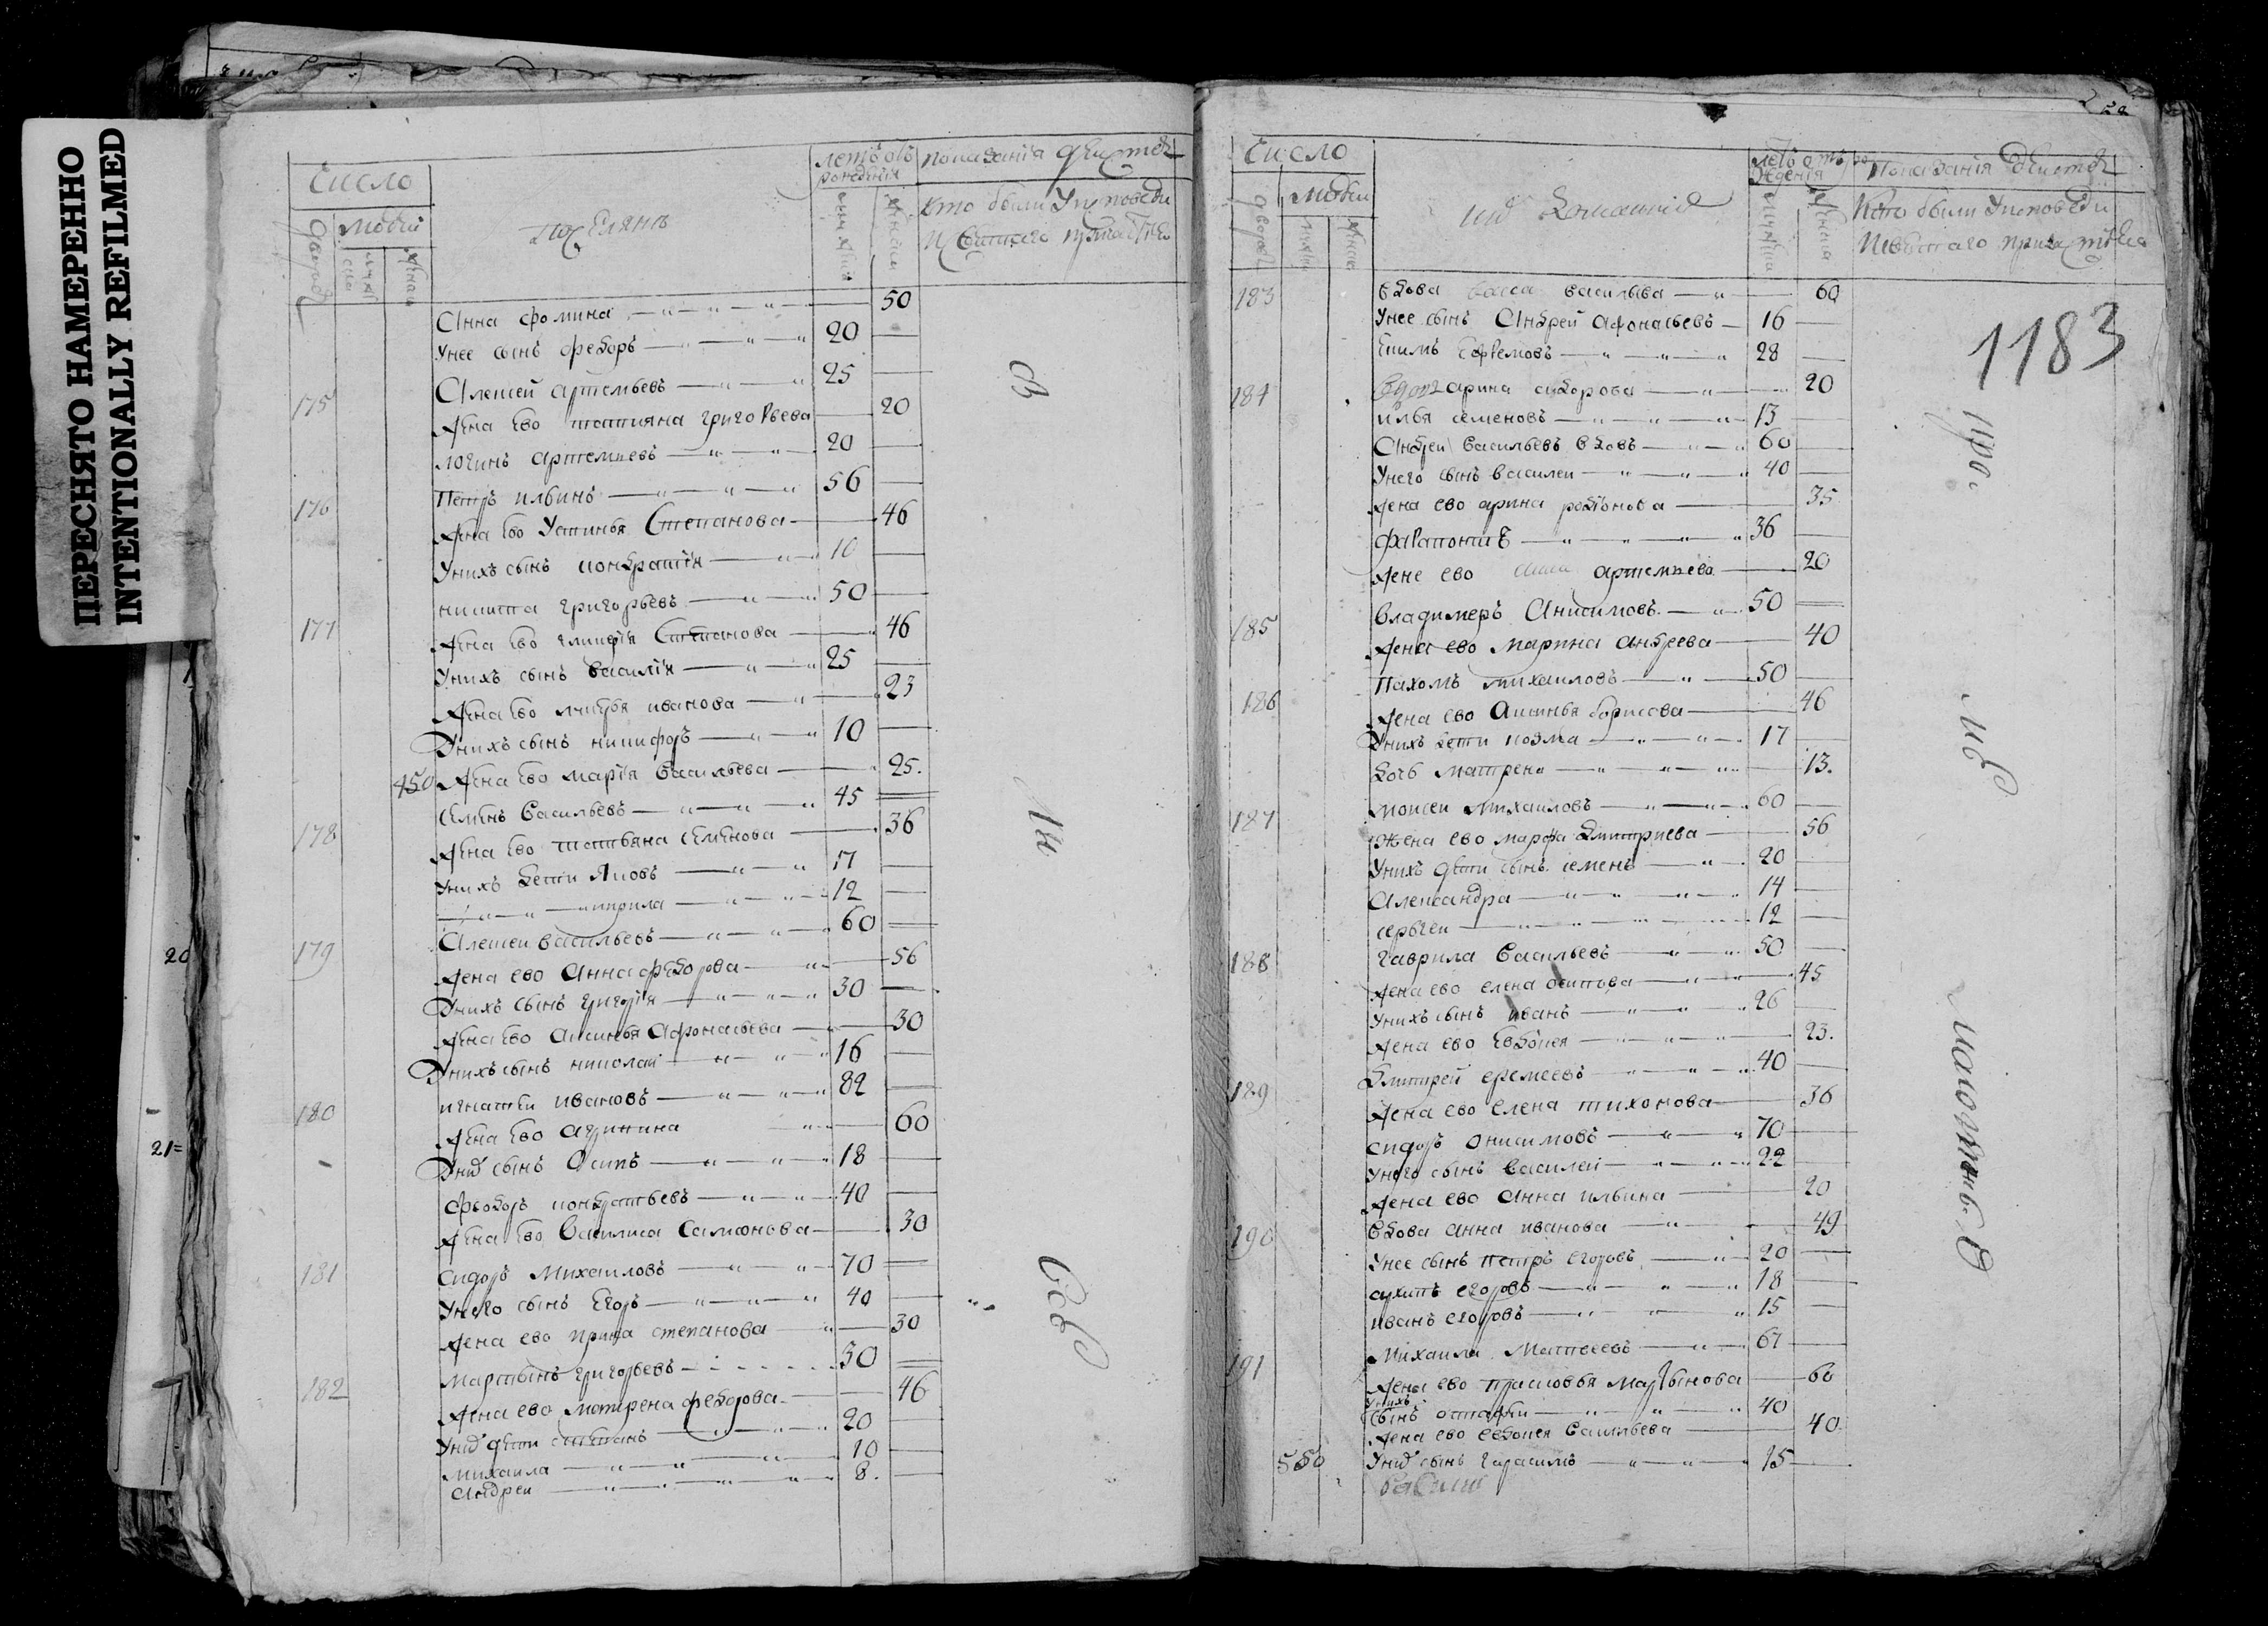 ПЕРЕСНЯТО НАМЕРЕННО
INTENTIONALLY REFILMED
Число
людей
летъ отъ рождения
показания действ
кто были у исповеди
и святаго причастия
Анна фомина 50
У нее сынъ федоръ 20
175 Алексей артемьевъ 25
Жена ево татияна григорьева 20
логинъ артемьевъ 20
176 Петръ ильинъ 56
Жена ево Устинья Степанова 46
У нихъ сынъ кондратия 10
177 никита григорьевъ 50
Жена ево гликерия Степанова 46
У нихъ сынъ василия 25
Жена ево иванова 23
У нихъ сынъ никифоръ 10
450 Жена ево мария васильева 25.
178 Семенъ васильевъ 45
Жена ево татьяна Семенова 36
У нихъ дети Яковъ 17
кирила 12
179 Алексеи васильевъ 60
Жена ево Анна федорова 56
У нихъ сынъ григория 30
Жена ево Аксинья Афонасьева 30
У нихъ сынъ николаи 16
180 игнатеи ивановъ 82
Жена ево 60
сынъ Осипъ 18
фьодоръ кондратьевъ 40
Жена ево Василиса Самсонова 30
181 сидоръ Михаиловъ 70
У него сынъ Егоръ 40
Жена ево ирина степанова 30
182 мартынъ григорьевъ 50
Жена ево матрена федорова 46
дети степанъ 20
михаила 10
андреи 8.
Число
людей
домашния
летъ отъ рождения
Показания действ
Кто были у исповеди
и святаго причастия
1183
183 вдова васа васильева 60
У нее сынъ Андрей афонасьевъ 16
Екимъ Ефремовъ 28
184 арина сидорова 20
илья семеновъ 13
Андреи васильевъ вдовъ 60
У него сынъ василеи 40
жена ево арина родионова 35
фарапонтъ 36
жена ево артемьева 20
185 владимеръ Анисимовъ 50
жена ево марина андреева 40
186 Пахомъ михаиловъ 50
жена ево Аксинья борисова 46
У нихъ дети козма 17
дочь матрена 13.
187 моисеи михаиловъ 60
Жена ево марфа дмитриева 56
У нихъ дети сынъ семенъ 20
Александра 14
сергеи 12
188 гаврила Васильевъ 50
жена ево елена осипова 45
У нихъ сынъ иванъ 26
жена ево Евдокея 23.
189 дмитрей еремеевъ 40
жена ево елена тихонова 36
сидоръ онисимовъ 70
У него сынъ василеи 22
жена ево анна ильина 20
190 Вдова анна иванова 49
У нее сынъ петръ егоровъ 20
архипъ егоровъ 18
иванъ егоровъ 15
191 Михаила Матвеевъ 67
Жена ево прасковья мартынова 60
У нихъ
сынъ остафеи 40
Жена ево евдокея васильева 40.
550 сынъ герасимъ 15